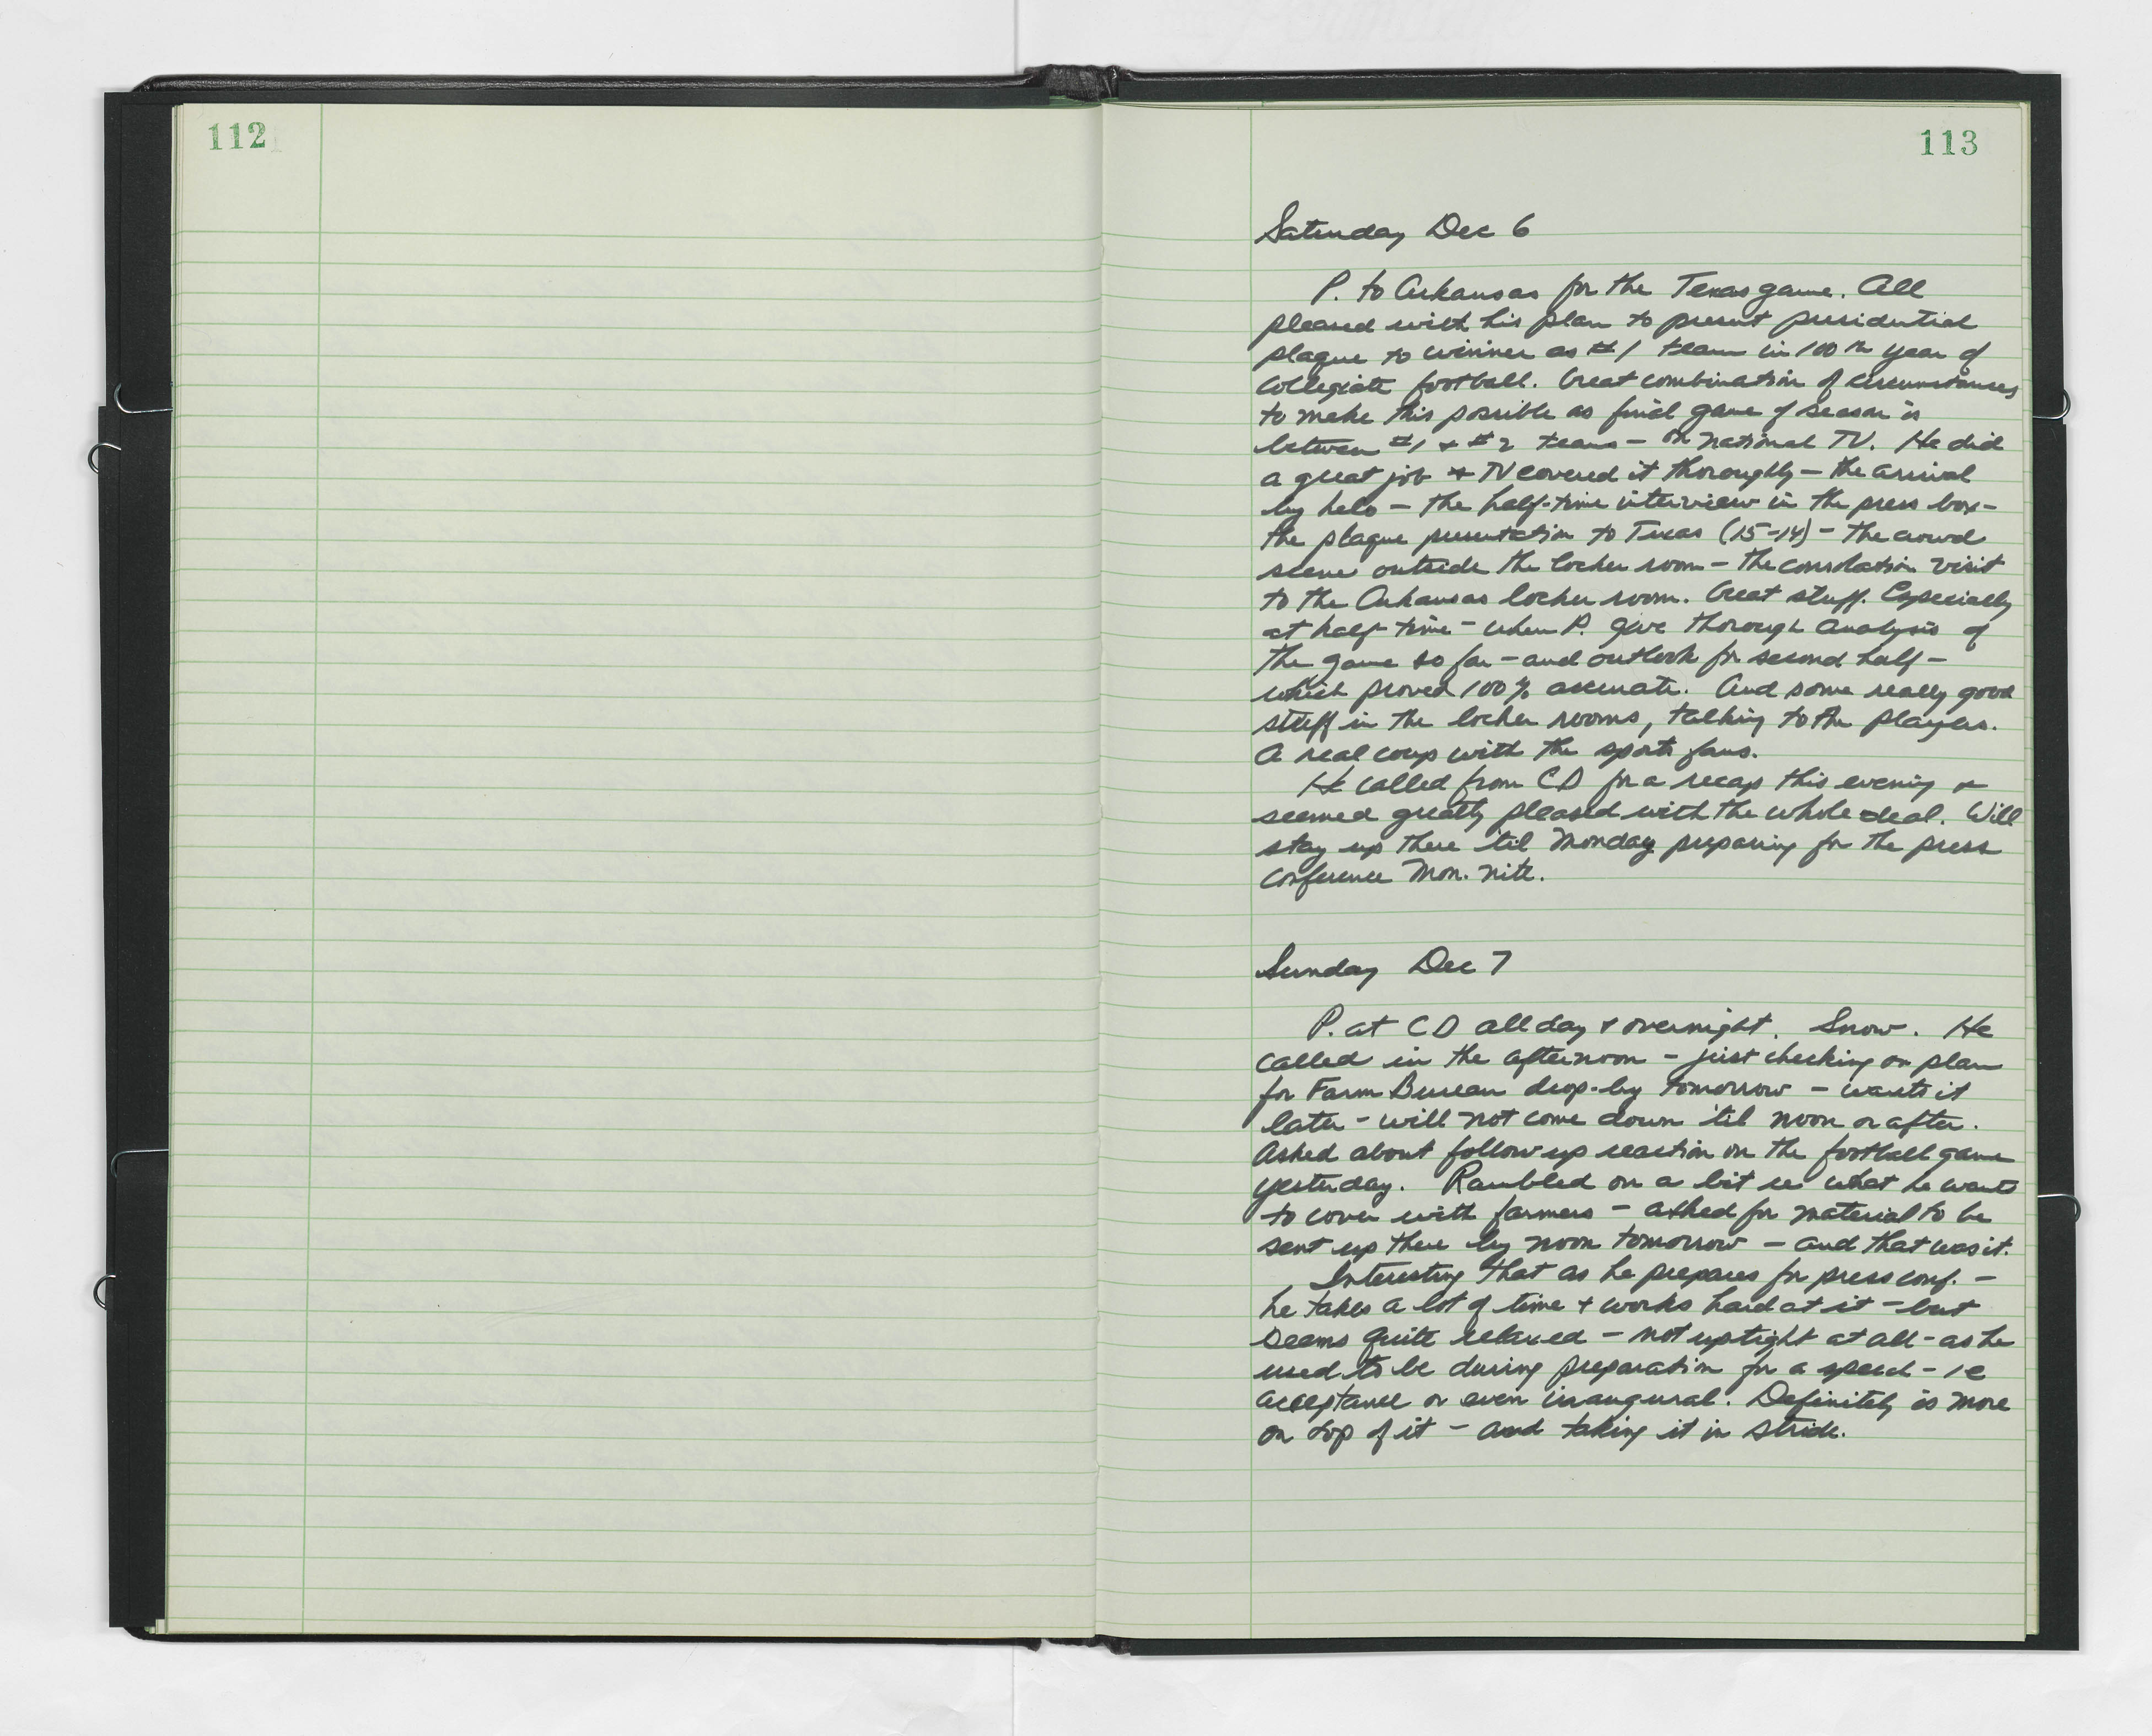 112
113
Saturday Dec 6
P. to Arkansas for the Texas game. All
pleased with his plan to present presidential
plaque to winner as #1 team in 100th year of
collegiate football. Great combination of circumstances
to make this possible as final game of season is
between #1 & #2 teams - on national TV. He did
a great job & TV covered it thoroughly - the arrival
by helo - the half-time interview in the press box -
the plaque presentation to Texas (15-14) - the crowd
scene outside the locker room - the consolation visit
to the Arkansas locker room. Great stuff. Especially
at half-time - when P. give thorough analysis of
the game so far - and outlook for second half -
which proved 100% accurate. And some really good
stuff in the locker rooms, talking to the players.
A real coup with the sports fans.
He called from CD for a recap this evening &
seemed greatly pleased with the whole deal. Will
stay up there 'til Monday preparing for the press
conference Mon. nite.
Sunday Dec 7
P. at CD all day & overnight. Snow. He
called in the afternoon - just checking on plan
for Farm Bureau drop-by tomorrow - wants it
later - will not come down 'til noon or after.
Asked about follow up reaction on the football game
yesterday. Rambled on a bit re what he wants
to cover with farmers - asked for material to be
sent up there by noon tomorrow - and that was it.
Interesting that as he prepares for press conf. -
he takes a lot of time + works hard at it - but
seems quite relaxed - not uptight at all - as he
used to be during preparation for a speech - ie
acceptance or even inaugural. Definitely is more
on top of it - and taking it in stride.